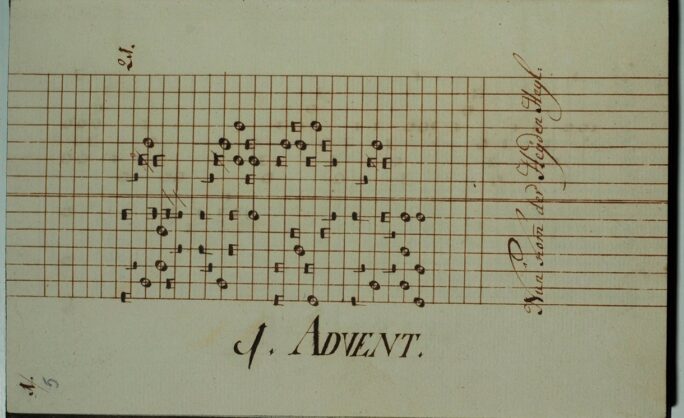 21.
Nun kom̅ der Heÿden Heyl.
1. ADVENT.
N.
5